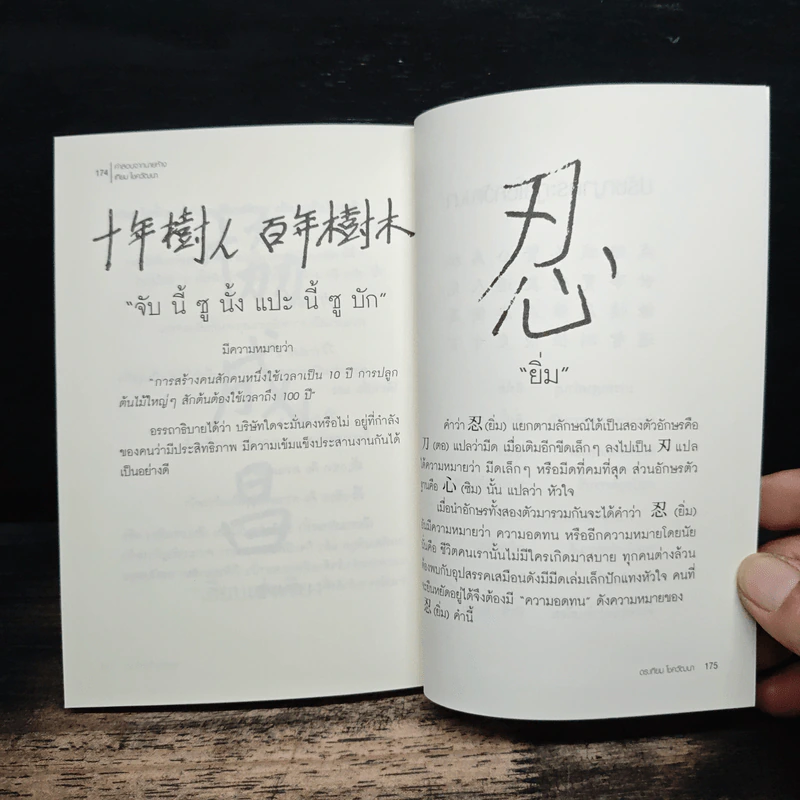 174
คำสอนจากนายห้าง
เทียม โชควัฒนา
十年樹人 百年樹木
“จับ นี้ ซู นั้ง แปะ นี้ ซู บัก”
มีความหมายว่า
“การสร้างคนสักคนหนึ่งใช้เวลาเป็น 10 ปี การปลูก
ต้นไม้ใหญ่ๆ สักต้นต้องใช้เวลาถึง 100 ปี”
อรรถาธิบายได้ว่า บริษัทใดจะมั่นคงหรือไม่ อยู่ที่กำลัง
ของคนว่ามีประสิทธิภาพ มีความเข้มแข็งประสานงานกันได้
เป็นอย่างดี
忍
“ยิ่ม”
คำว่า 忍 (ยิ่ม) แยกตามลักษณ์ได้เป็นสองตัวอักษรคือ
刀 (ตอ) แปลว่ามีด เมื่อเติมอีกขีดเล็กๆ ลงไปเป็น 刃 แปล
ได้ความหมายว่า มีดเล็กๆ หรือมีดที่คมที่สุด ส่วนอักษรตัว
ฐานคือ 心 (ซิม) นั้น แปลว่า หัวใจ
เมื่อนำอักษรทั้งสองตัวมารวมกันจะได้คำว่า 忍 (ยิ่ม)
อันมีความหมายว่า ความอดทน หรืออีกความหมายโดยนัย
นั้นคือ ชีวิตคนเรานั้นไม่มีใครเกิดมาสบาย ทุกคนต่างล้วน
ต้องพบกับอุปสรรคเสมือนดังมีมีดเล่มเล็กปักแทงหัวใจ คนที่
จะยืนหยัดอยู่ได้จึงต้องมี “ความอดทน” ดังความหมายของ
忍 (ยิ่ม) คำนี้
ดร.เทียม โชควัฒนา 175